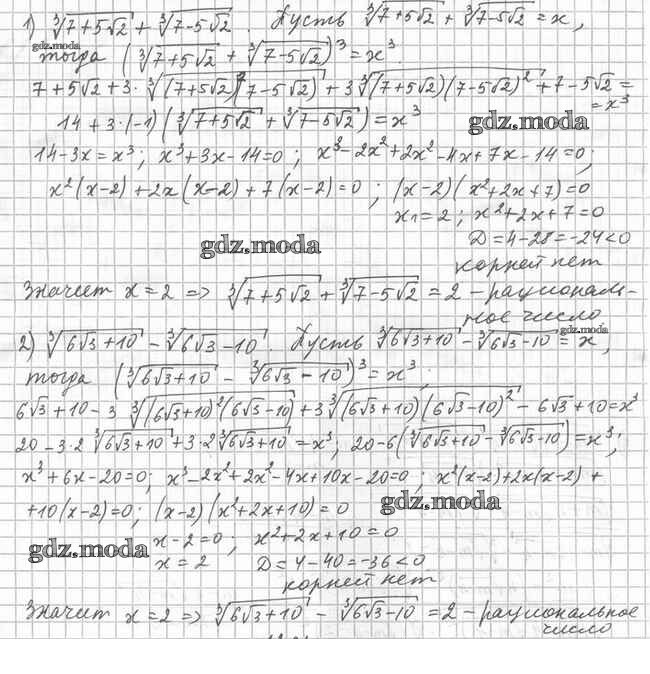 1) ∛(7+5√2) + ∛(7-5√2). Пусть ∛(7+5√2) + ∛(7-5√2) = x,
gdz.moda
тогда (∛(7+5√2) + ∛(7-5√2))³ = x³.
7+5√2+3·∛((7+5√2)²(7-5√2)) + 3∛((7+5√2)(7-5√2)²) + 7-5√2 =
= x³
gdz.moda
14+3·(-1)(∛(7+5√2) + ∛(7-5√2)) = x³
14-3x=x³; x³+3x-14=0; x³-2x²+2x²-4x+7x-14=0;
x²(x-2)+2x(x-2)+7(x-2)=0; (x-2)(x²+2x+7)=0
x₁=2; x²+2x+7=0
D=4-28=-24<0
gdz.moda
корней нет
Значит x=2 => ∛(7+5√2) + ∛(7-5√2) = 2 - рациональ-
ное число
2) ∛(6√3+10) - ∛(6√3-10). Пусть ∛(6√3+10) - ∛(6√3-10) = x,
gdz.moda
тогда (∛(6√3+10) - ∛(6√3-10))³ = x³;
6√3+10-3∛((6√3+10)²(6√3-10)) + 3∛((6√3+10)(6√3-10)²) - 6√3+10=x³
20-3·2∛(6√3+10)+3·2∛(6√3+10) = x³; 20-6(∛(6√3+10) - ∛(6√3-10)) = x³;
x³+6x-20=0; x³-2x²+2x²-4x+10x-20=0; x²(x-2)+2x(x-2)+
+10(x-2)=0; (x-2)(x²+2x+10)=0
gdz.moda
x-2=0; x²+2x+10=0
gdz.moda
x=2 D=4-40=-36<0
корней нет
Значит x=2 => ∛(6√3+10) - ∛(6√3-10) = 2 - рациональное
число